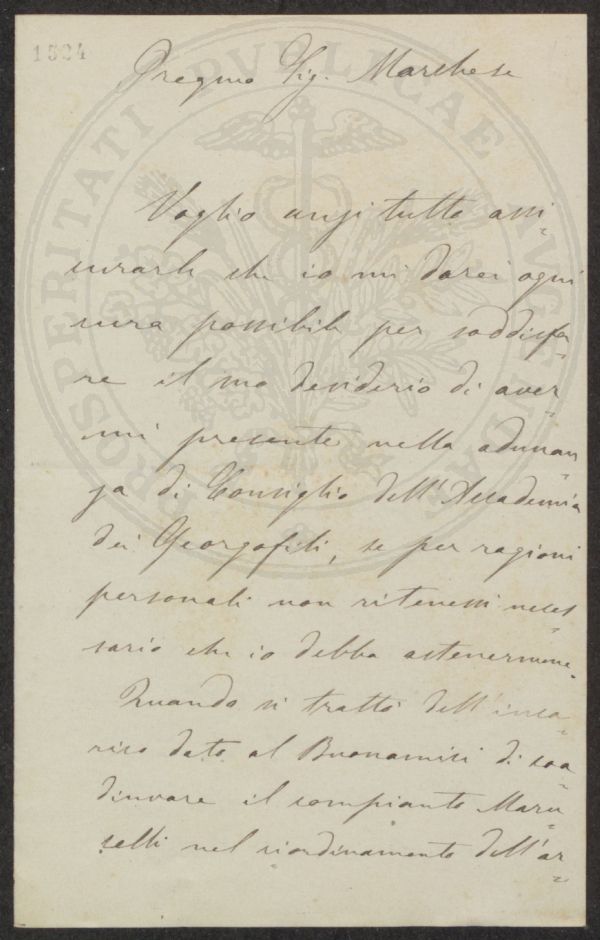 1524
PROSPERITATI PVBLICAE AVGENDAE
Pregmo Sig. Marchese
Voglio anzi tutto assi=
curarla che io mi darei ogni
cura possibile per soddisfa=
re il suo desiderio di aver=
mi presente nella adunan=
za di Consiglio dell'Accademia
dei Georgofili, se per ragioni
personali non ritenessi neces=
sario che io debba astenermene.
Quando si trattò dell'inca=
rico dato al Buonamici di coa=
diuvare il compianto Maru=
celli nel riordinamento dell'ar=